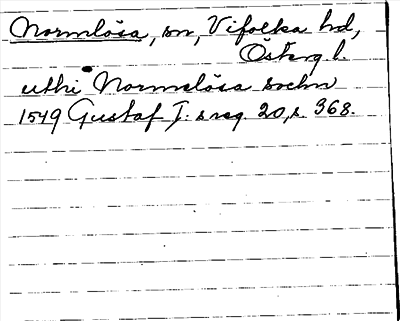 Normlösa, sn, Vifolka hd,
Österg l.
uthi Normelösa sochn
1549 Gustaf I:s reg. 20, s. 368.